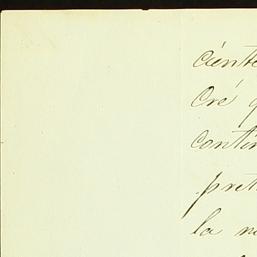 cient
Cré q
contin
pret
la n